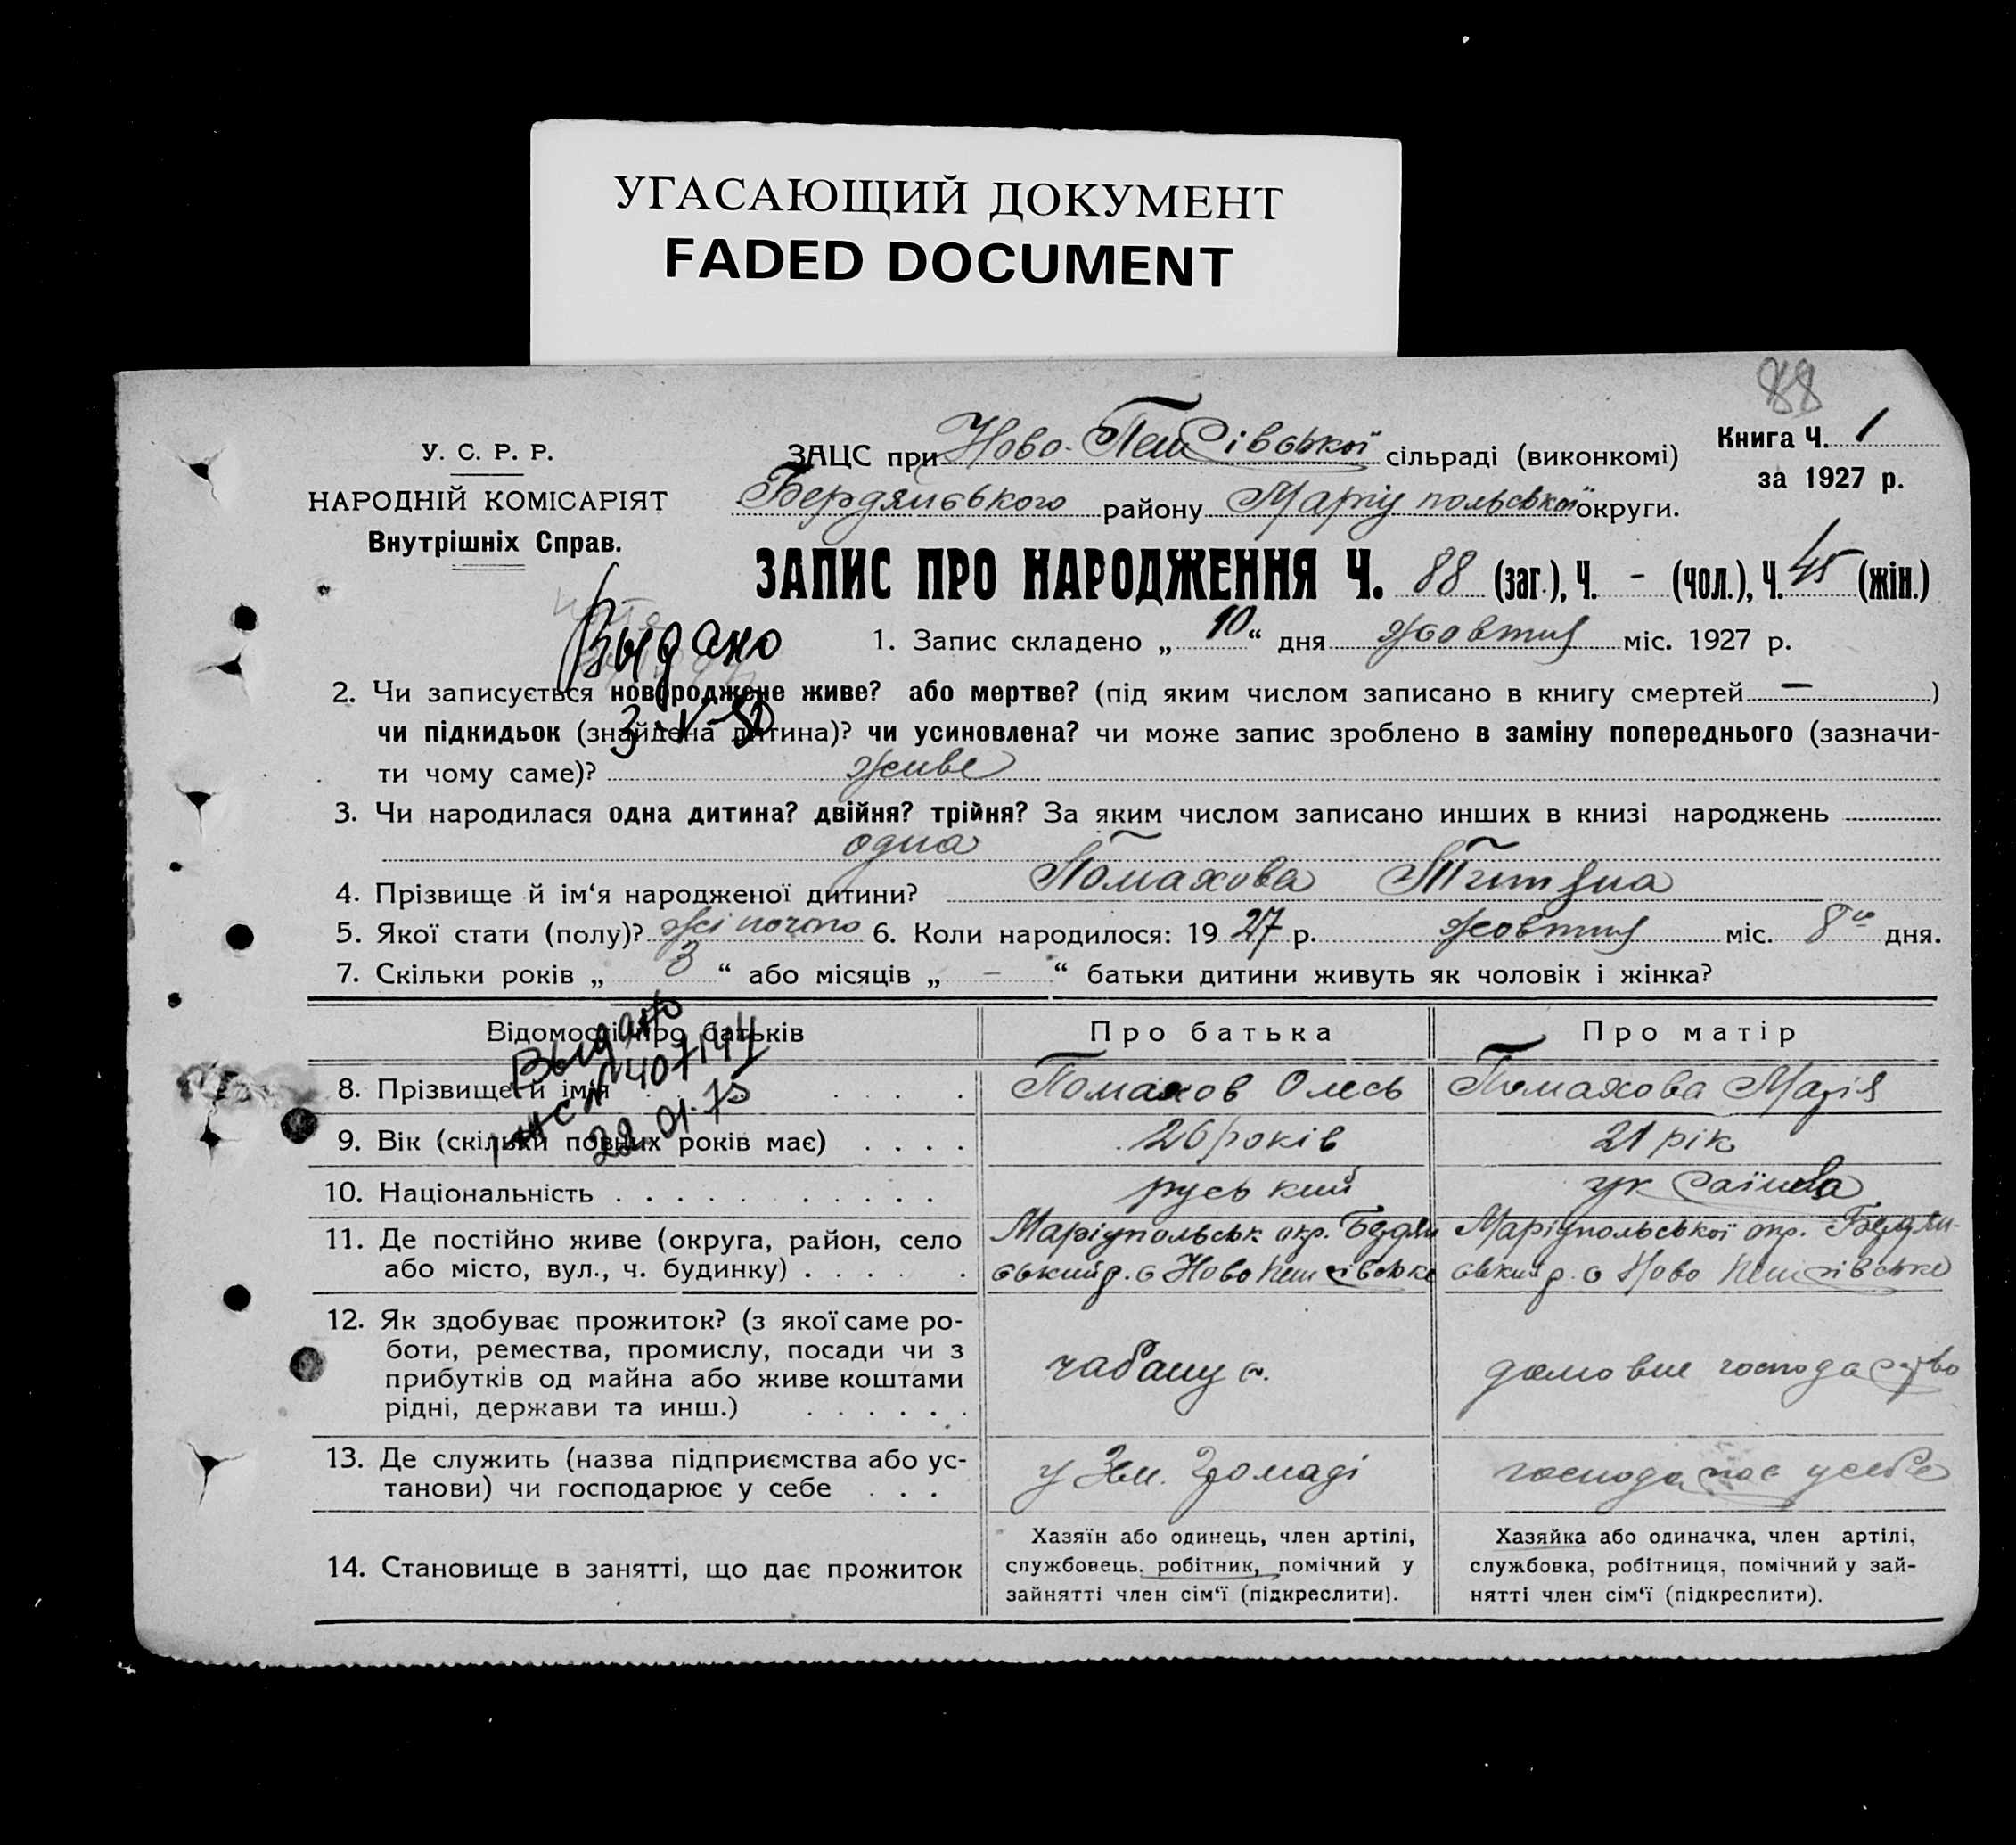 УГАСАЮЩИЙ ДОКУМЕНТ
FADED DOCUMENT
88
У. С. Р. Р.
НАРОДНІЙ КОМІСАРІЯТ
Внутрішніх Справ.
ЗАЦС при Ново- сільраді (виконкомі)
Бердянського району Маріупольської округи.
Книга Ч. 1
за 1927 р.
ЗАПИС ПРО НАРОДЖЕННЯ Ч. 88 (заг.), Ч. - (чол.), Ч. 45 (жін.)
Выдано
3-V-50
1. Запис складено „ 10 “ дня жовтня міс. 1927 р.
2. Чи записується новороджене живе? або мертве? (під яким числом записано в книгу смертей — )
чи підкидьок (знайдена дитина)? чи усиновлена? чи може запис зроблено в заміну попереднього (зазначи-
ти чому саме)? живе
3. Чи народилася одна дитина? двійня? трійня? За яким числом записано инших в книзі народжень
одна
4. Прізвище й ім‘я народженої дитини? Помахова
5. Якої стати (полу)? жіночого 6. Коли народилося: 1927 р. жовтня міс. 8го дня.
7. Скільки років „ 3 “ або місяців „ - “ батьки дитини живуть як чоловік і жінка?
Відомості про батьків
Про батька
Про матір
Выдано
407144
22.01.75
8. Прізвище й імя . . . .
Помахов Олесь
Помахова Марія
9. Вік (скільки повних років має) . . . .
26 років
21 рік
10. Національність . . . . . . . . . .
руський
українка
11. Де постійно живе (округа, район, село
або місто, вул., ч. будинку) . . . . .
Маріупольськ окр. Бердян
ський р. с Ново
Маріупольської окр. Бердян-
ський р. с Ново
12. Як здобуває прожиток? (з якої саме ро-
боти, ремества, промислу, посади чи з
прибутків од майна або живе коштами
рідні, держави та инш.) . . . . . .
чабанує.
домовне господарство
13. Де служить (назва підприємства або ус-
танови) чи господарює у себе . . .
у Зем. Громаді
господарює у себе
14. Становище в занятті, що дає прожиток
Хазяїн або одинець, член артілі,
службовець, робітник, помічний у
зайнятті член сім‘ї (підкреслити).
Хазяйка або одиначка, член артілі,
службовка, робітниця, помічний у зай-
нятті член сім‘ї (підкреслити).